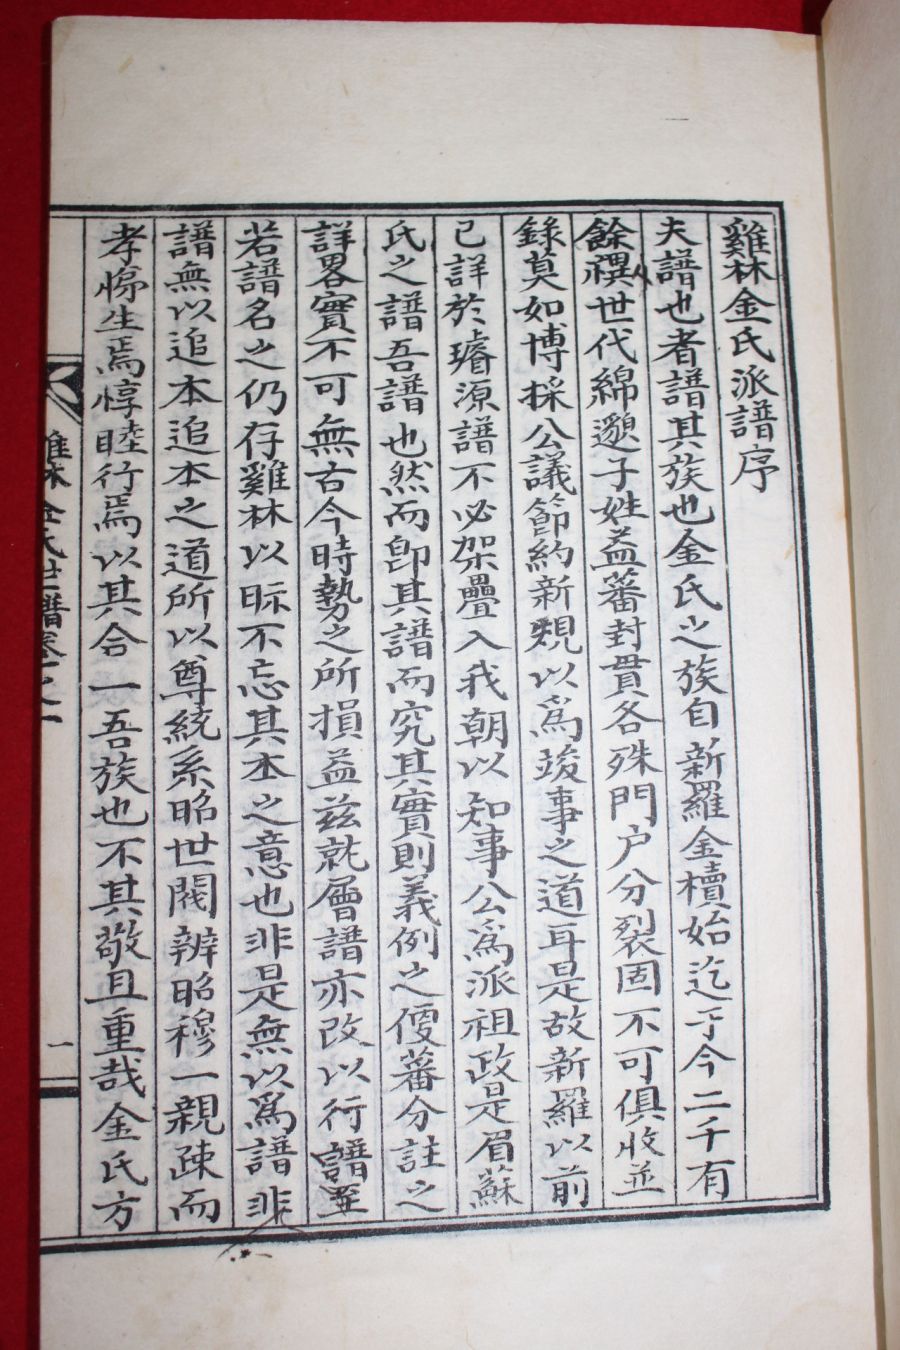 雞林金氏派譜序
夫譜也者譜其族也金氏之族自新羅金櫝始迄于今二千有
餘禩世代綿邈子姓益蕃封貫各殊門户分裂固不可俱收並
錄莫如博採公議節約新規以爲竣事之道耳是故新羅以前
已詳於璿源譜不必架疊入我朝以知事公爲派祖政是眉蘇
氏之譜吾譜也然而卽其譜而究其實則義例之優蕃分註之
詳畧實不可無古今時勢之所損益玆就層譜亦改以行譜至
若譜名之仍存雞林以眎不忘其本之意也非是無以爲譜非
譜無以追本追本之道所以尊統系昭世閥辨昭穆一親疎而
孝悌生焉惇睦行焉以其合一吾族也不其敬且重哉金氏方
雞林金氏世譜卷之一
一